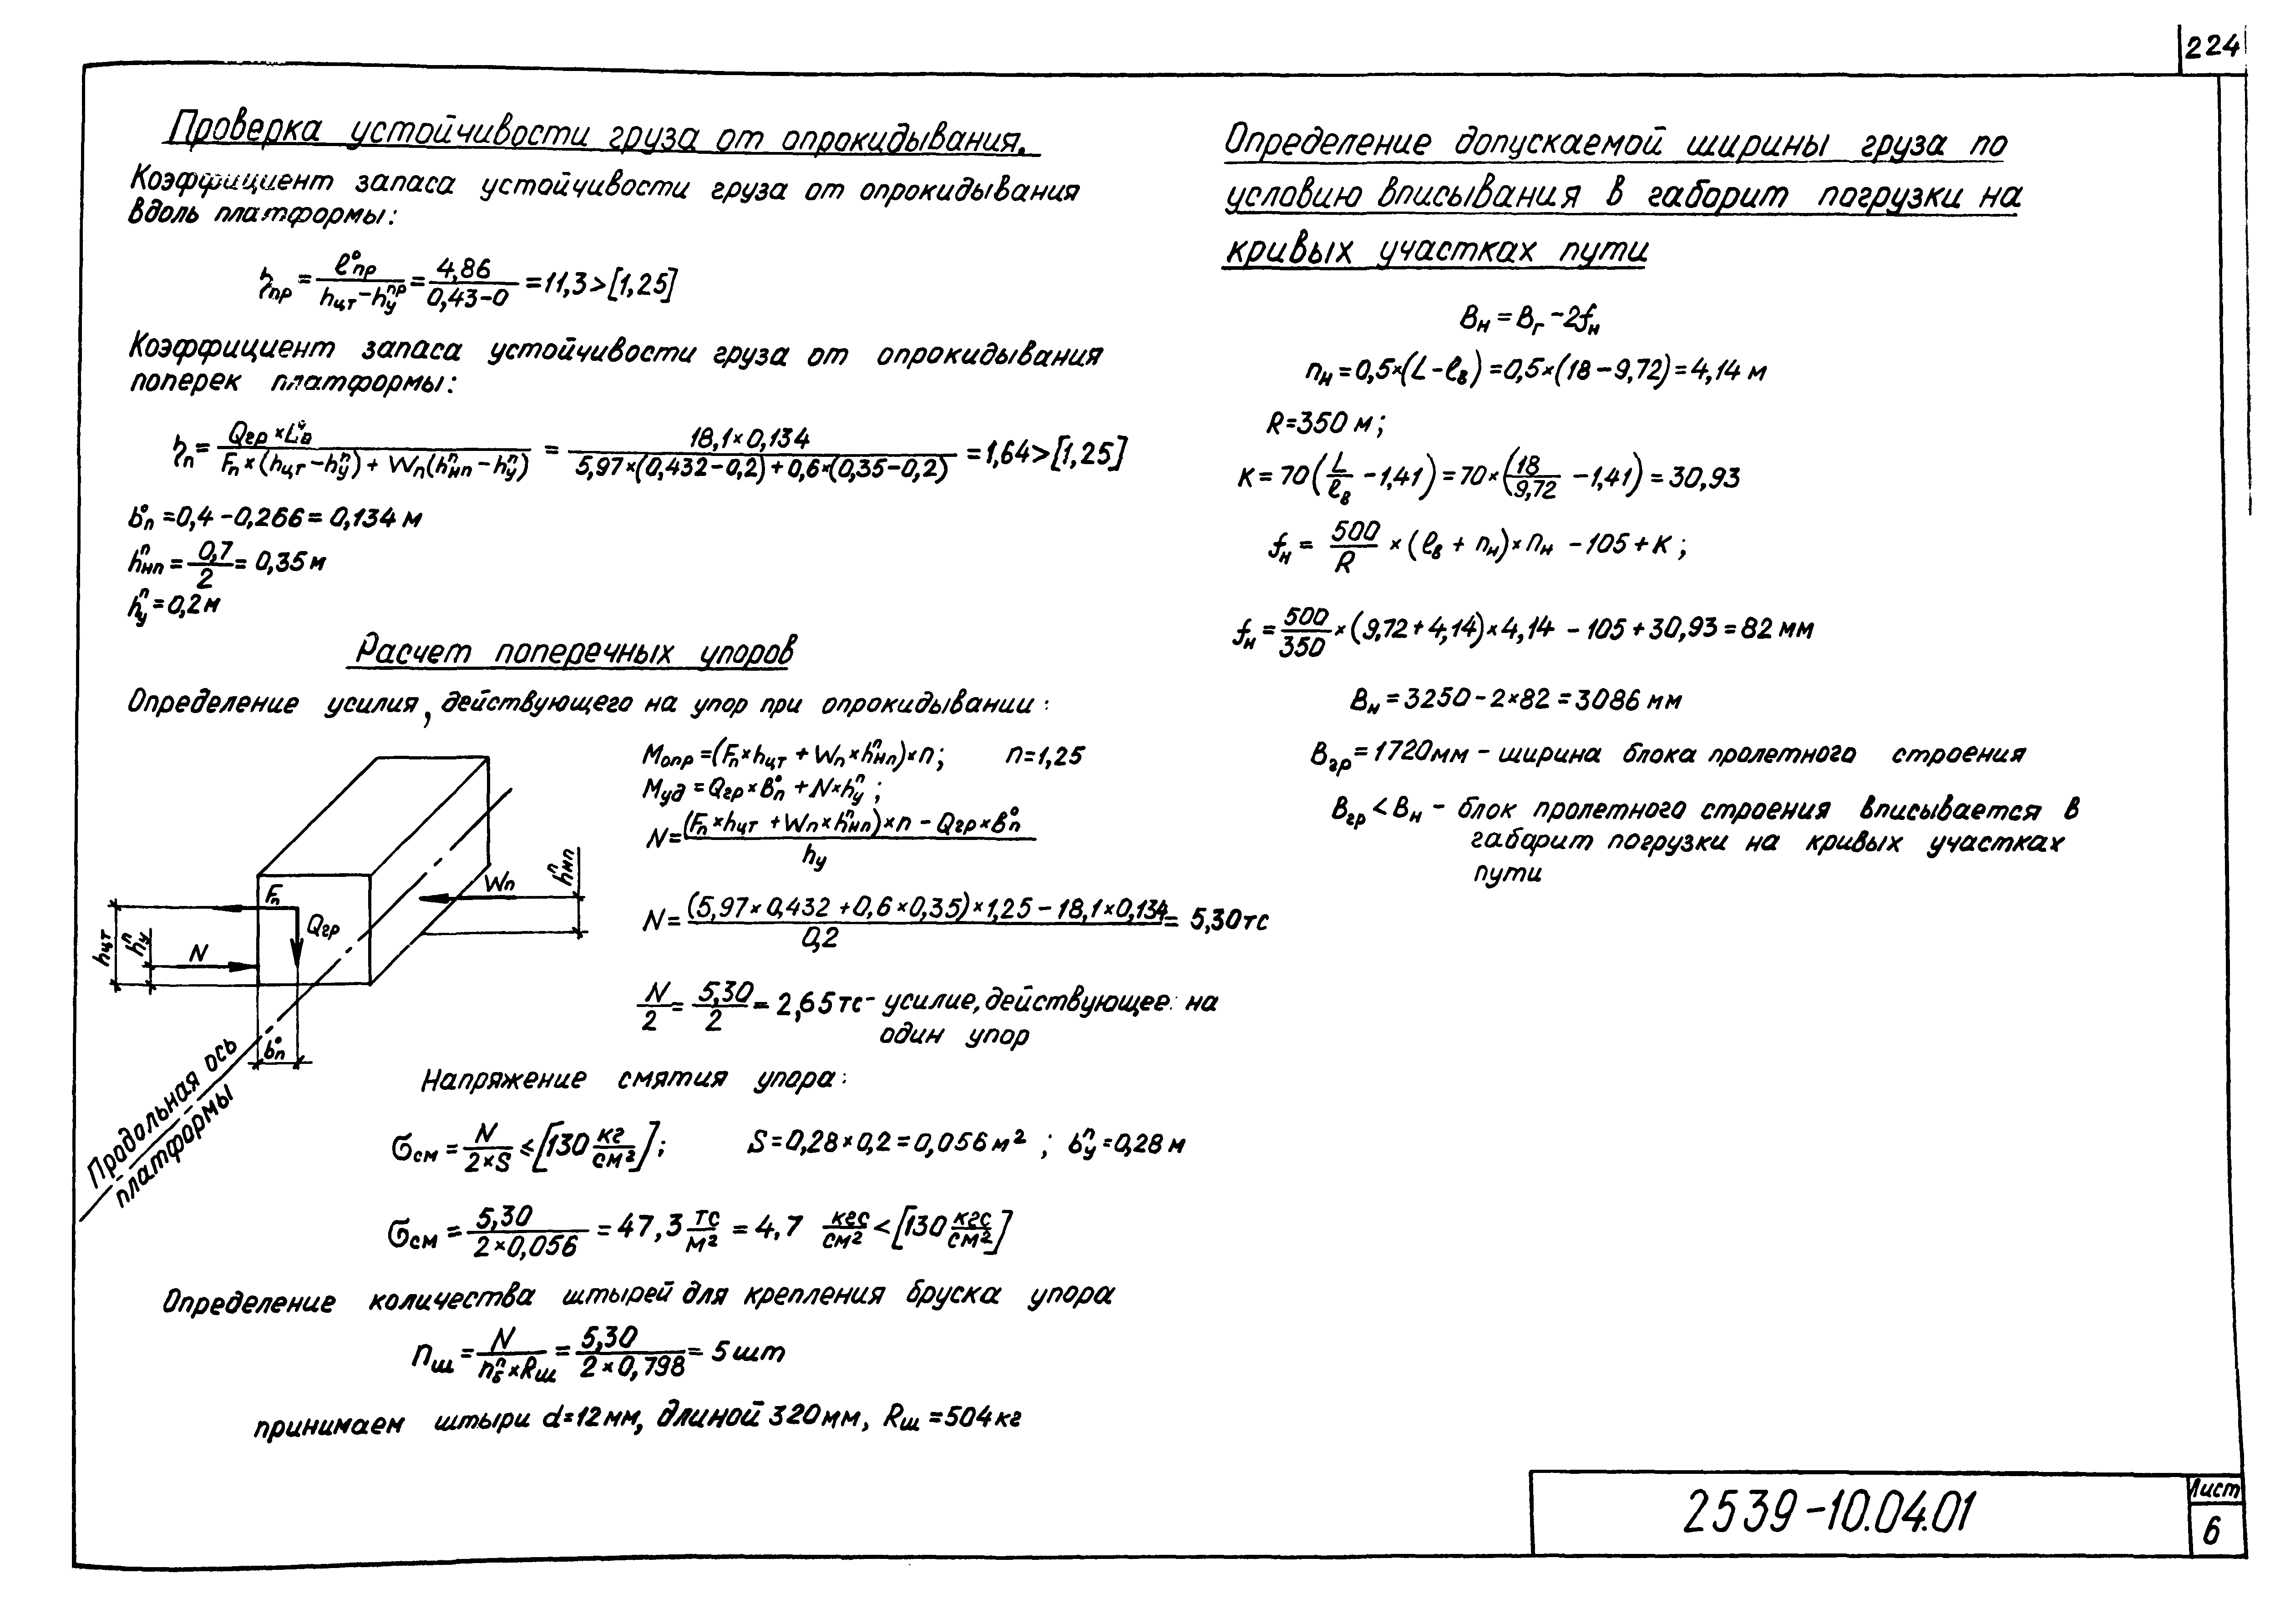 224
Проверка устойчивости груза от опрокидывания.
Коэффициент запаса устойчивости груза от опрокидывания
вдоль платформы:
ηпр = l°пр / (hцт − hу^пр) = 4,86 / (0,43−0) = 11,3 > [1,25]
Коэффициент запаса устойчивости груза от опрокидывания
поперек платформы:
ηп = Qгр × / (Fп × (hцт − hу^п) + Wп(hнп^п − hу^п)) = 18,1×0,134 / (5,97×(0,432−0,2)+0,6×(0,35−0,2)) = 1,64 > [1,25]
b°п = 0,4 − 0,266 = 0,134 м
hнп^п = 0,7 / 2 = 0,35 м
hу^п = 0,2 м
Расчет поперечных упоров
Определение усилия, действующего на упор при опрокидывании:
Мопр = (Fп × hцт + Wп × hнп^п) × п; п = 1,25
Муд = Qгр × В°п + N × hу^п;
N = (Fп × hцт + Wп × hнп^п) × п − Qгр × в°п / hу
N = (5,97×0,432 + 0,6×0,35)×1,25 − 18,1×0,134 / 0,2 = 5,30 тс
N / 2 = 5,30 / 2 = 2,65 тс - усилие, действующее на
один упор
Fп
Qгр
Wп
hнп^п
hцт
hу^п
N
b°п
Продольная ось
платформы
Напряжение смятия упора:
σсм = N / 2×S ≤ [130 кг/см²]; S = 0,28×0,2 = 0,056 м²; bу^п = 0,28 м
σсм = 5,30 / 2×0,056 = 47,3 тс/м² = 4,7 кгс/см² < [130 кгс/см²]
Определение количества штырей для крепления бруска упора
пш = N / пб^п × Rш = 5,30 / 2×0,798 = 5 шт
принимаем штыри d=12мм, длиной 320мм, Rш = 504 кг
Определение допускаемой ширины груза по
условию вписывания в габорит погрузки на
кривых участках пути
Вн = Вг − 2fн
пн = 0,5×(L − lв) = 0,5×(18 − 9,72) = 4,14 м
R=350 м;
К = 70(L/lв − 1,41) = 70×(18/9,72 − 1,41) = 30,93
fн = 500/R × (lв + пн) × пн − 105 + К;
fн = 500/350 × (9,72 + 4,14) × 4,14 − 105 + 30,93 = 82 мм
Вн = 3250 − 2×82 = 3086 мм
Вгр = 1720мм - ширина блока пролетного строения
Вгр < Вн - блок пролетного строения вписывается в
габарит погрузки на кривых участках
пути
2539-10.04.01
Лист
6